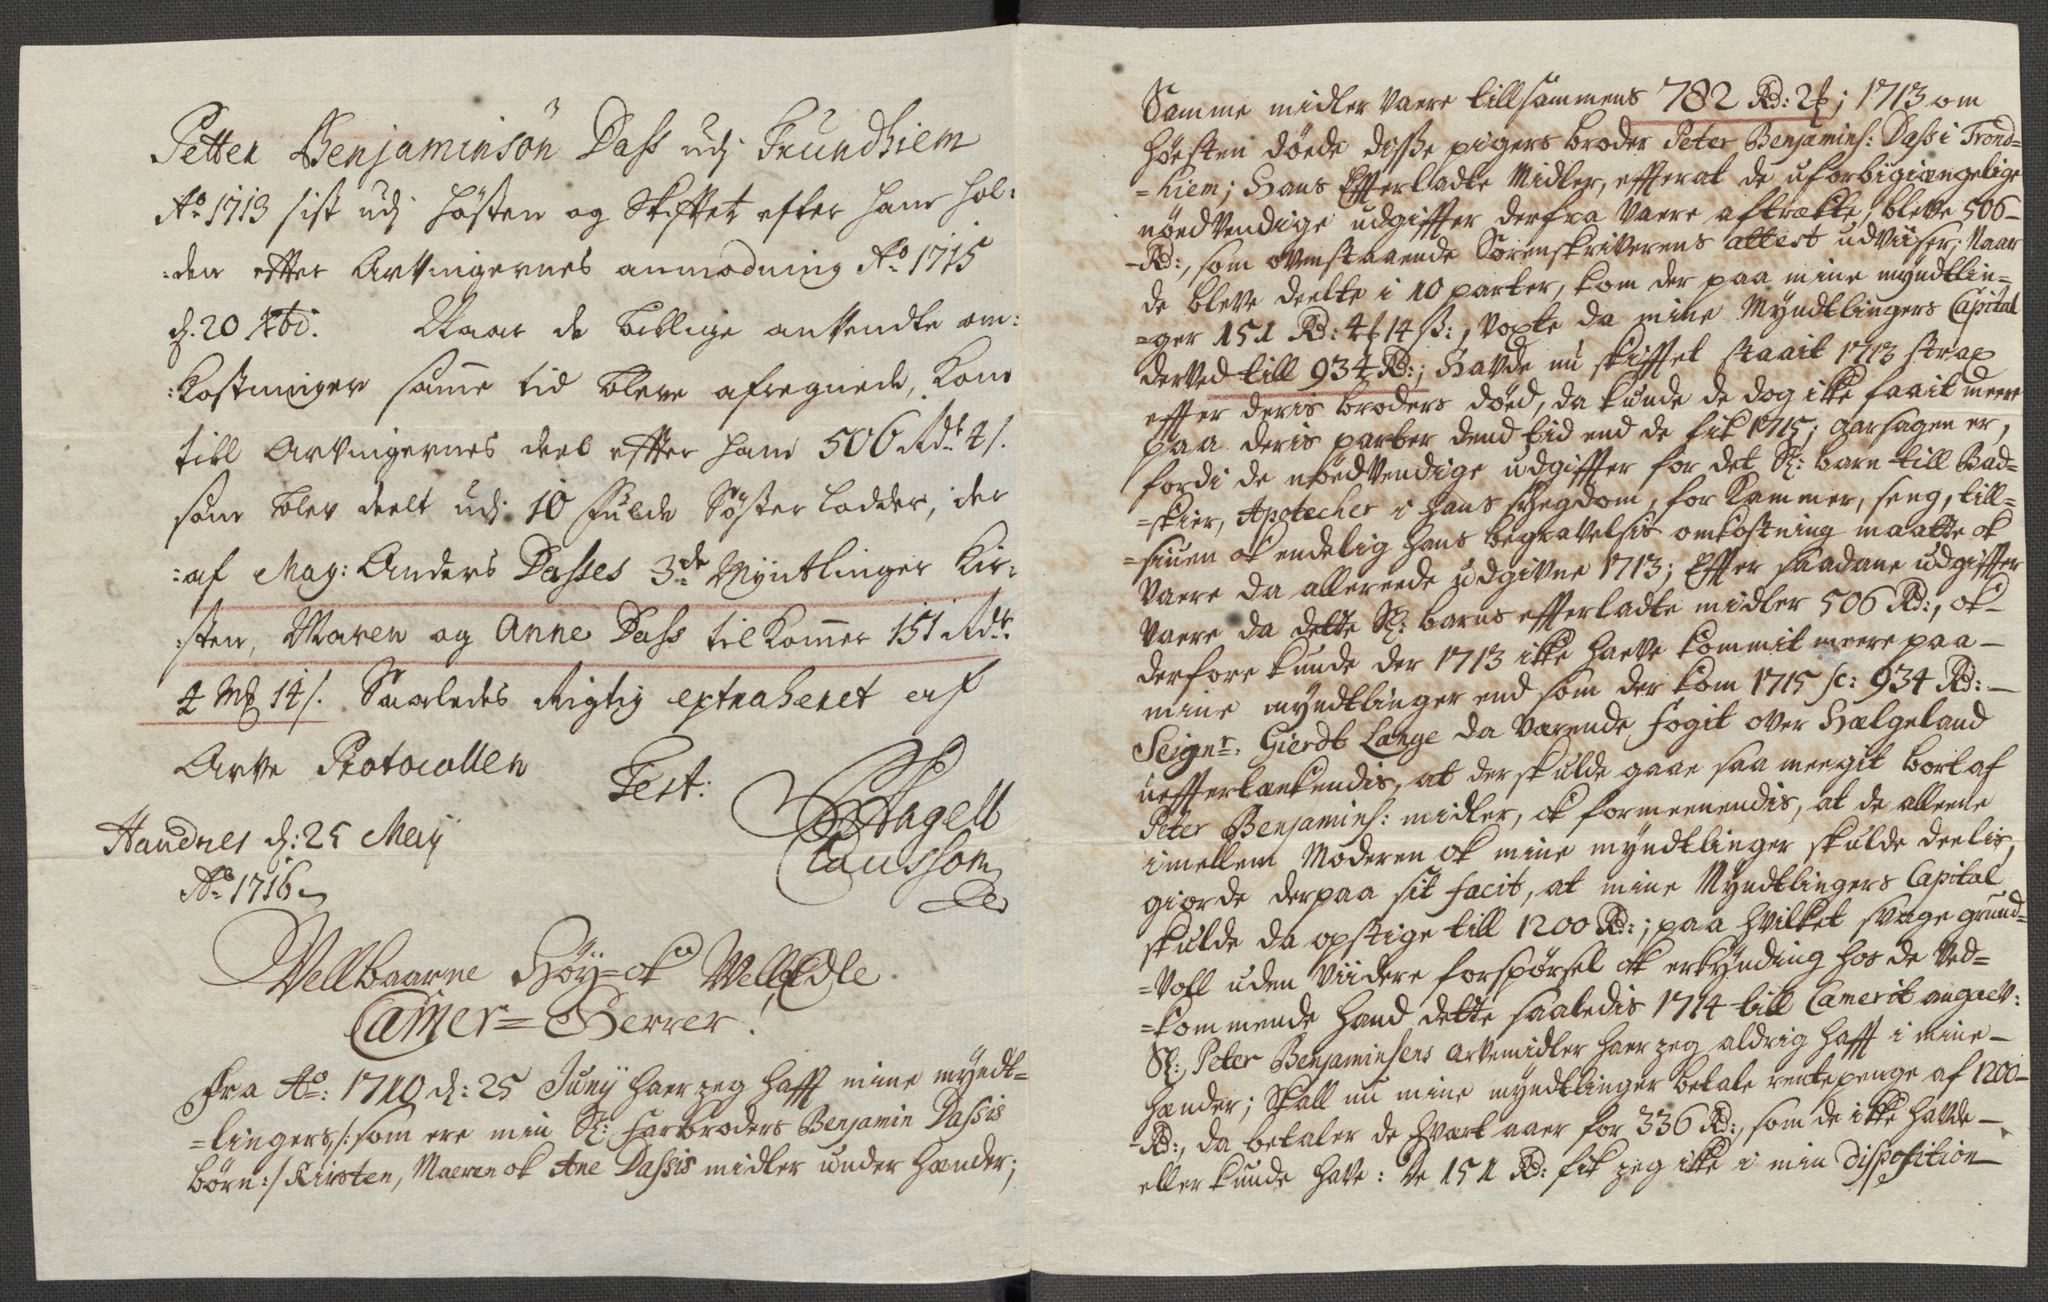 Petter Benjaminsön Dass udj Trundhiem
Ao 1713 sist udj Høsten og Skiftet efter ham hol:
:den efter Arvingernes anmodning Ao 1715
d. 20 Xbr. Naar de billige anvendte om:
:kostninger samme tid bleve afregnede, kom
till Arvingernes deel effter ham 506 Rdr 4 s.
som blev deelt udj 10 fulde Söster lodder, der
:af May: Anders Dasses 3de Myntlinger Kir:
:sten, Maren og Anne Dass tilkommer 151 Rdr.
4 Mk 14 s. Saaledes Rigtig extraheret af
Arve Protocollen
Test:
Angell
Claussøn
Handnes d: 25 Maij
Ao 1716
Vellbaarne Höy- ok Vell Edle
Camer= Herrer!
Fra Ao: 1710 d: 25 Junij haer jeg hafft mine myndt=
=lingers /: som ere min Sl: farbroders Benjamin Dassis
børn :/ Kirsten, Maeren ok Ane Dassis midler under hænder;
Samme midler vaere tillsammens 782 Rd: 2 ; 1713 om
høesten døede disse pigers broder Peter Benjamins: Dass i Trond=
=hiem; Hans Efterladte Midler, effterat de uforbigiængelige
nöedvendige udgiffter derfra vaere aftrækte, bleve 506
Rd:, som ovenstaaende Sorenskriverens attest udviiser; Naar
de bleve deelte i 10 parter, kom der paa mine myndtlin=
=ger 151 Rd: 4 14 s:, voxte da mine Myndtlingers Capital
derved till 934 Rd:; Havde nu skifftet staait 1713 strax
effter deris broders döed, da kunde de dog ikke faait meere
paa deris parter dend tid end de fik 1715; aarsagen er,
fordi de nöedvendige udgiffter for det Sl: barn till Bad=
=skier, Apotecher i hans svegdom, for Kammer, seng, till=
=siuen ok endelig hans begravelsis omkostning maatte ok
vaere da allereede udgivne 1713; Effter saadane udgiffter
vaere da dette Sl: barns effterladte midler 506 Rd:, ok
derfore kunde der 1713 ikke haeve kommit meere paa
mine myndtlinger end som der kom 1715 sc: 934 Rd:
Seignr. Gierdt Lange da værende fogit over Hælgeland
uefftertænkendis, at der skulde gaae saa meegit bort af
Peter Benjamins: midler, ok formeenendis, at de alleene
imellem Moderen ok mine myndtlinger skulde deelis,
giorde derpaa sit facit, at mine Myndtlingers Capital
skulde da opstige till 1200 Rd:; paa hvilket svage grund=
=voll uden viidere forspörsel ok erkynding hos de ved=
=kommende hand dette saaledis 1714 till Camerit angaev:
Sl: Peter Benjaminsens arvemidler haer jeg aldrig hafft i mine
hænder; Skall nu mine myndtlinger betale rentepenge af 1200
Rd:, da betaler de hvært aaer for 336 Rd:, som de ikke havde
eller kunde have: De 151 Rd: fik jeg ikke i min disposition